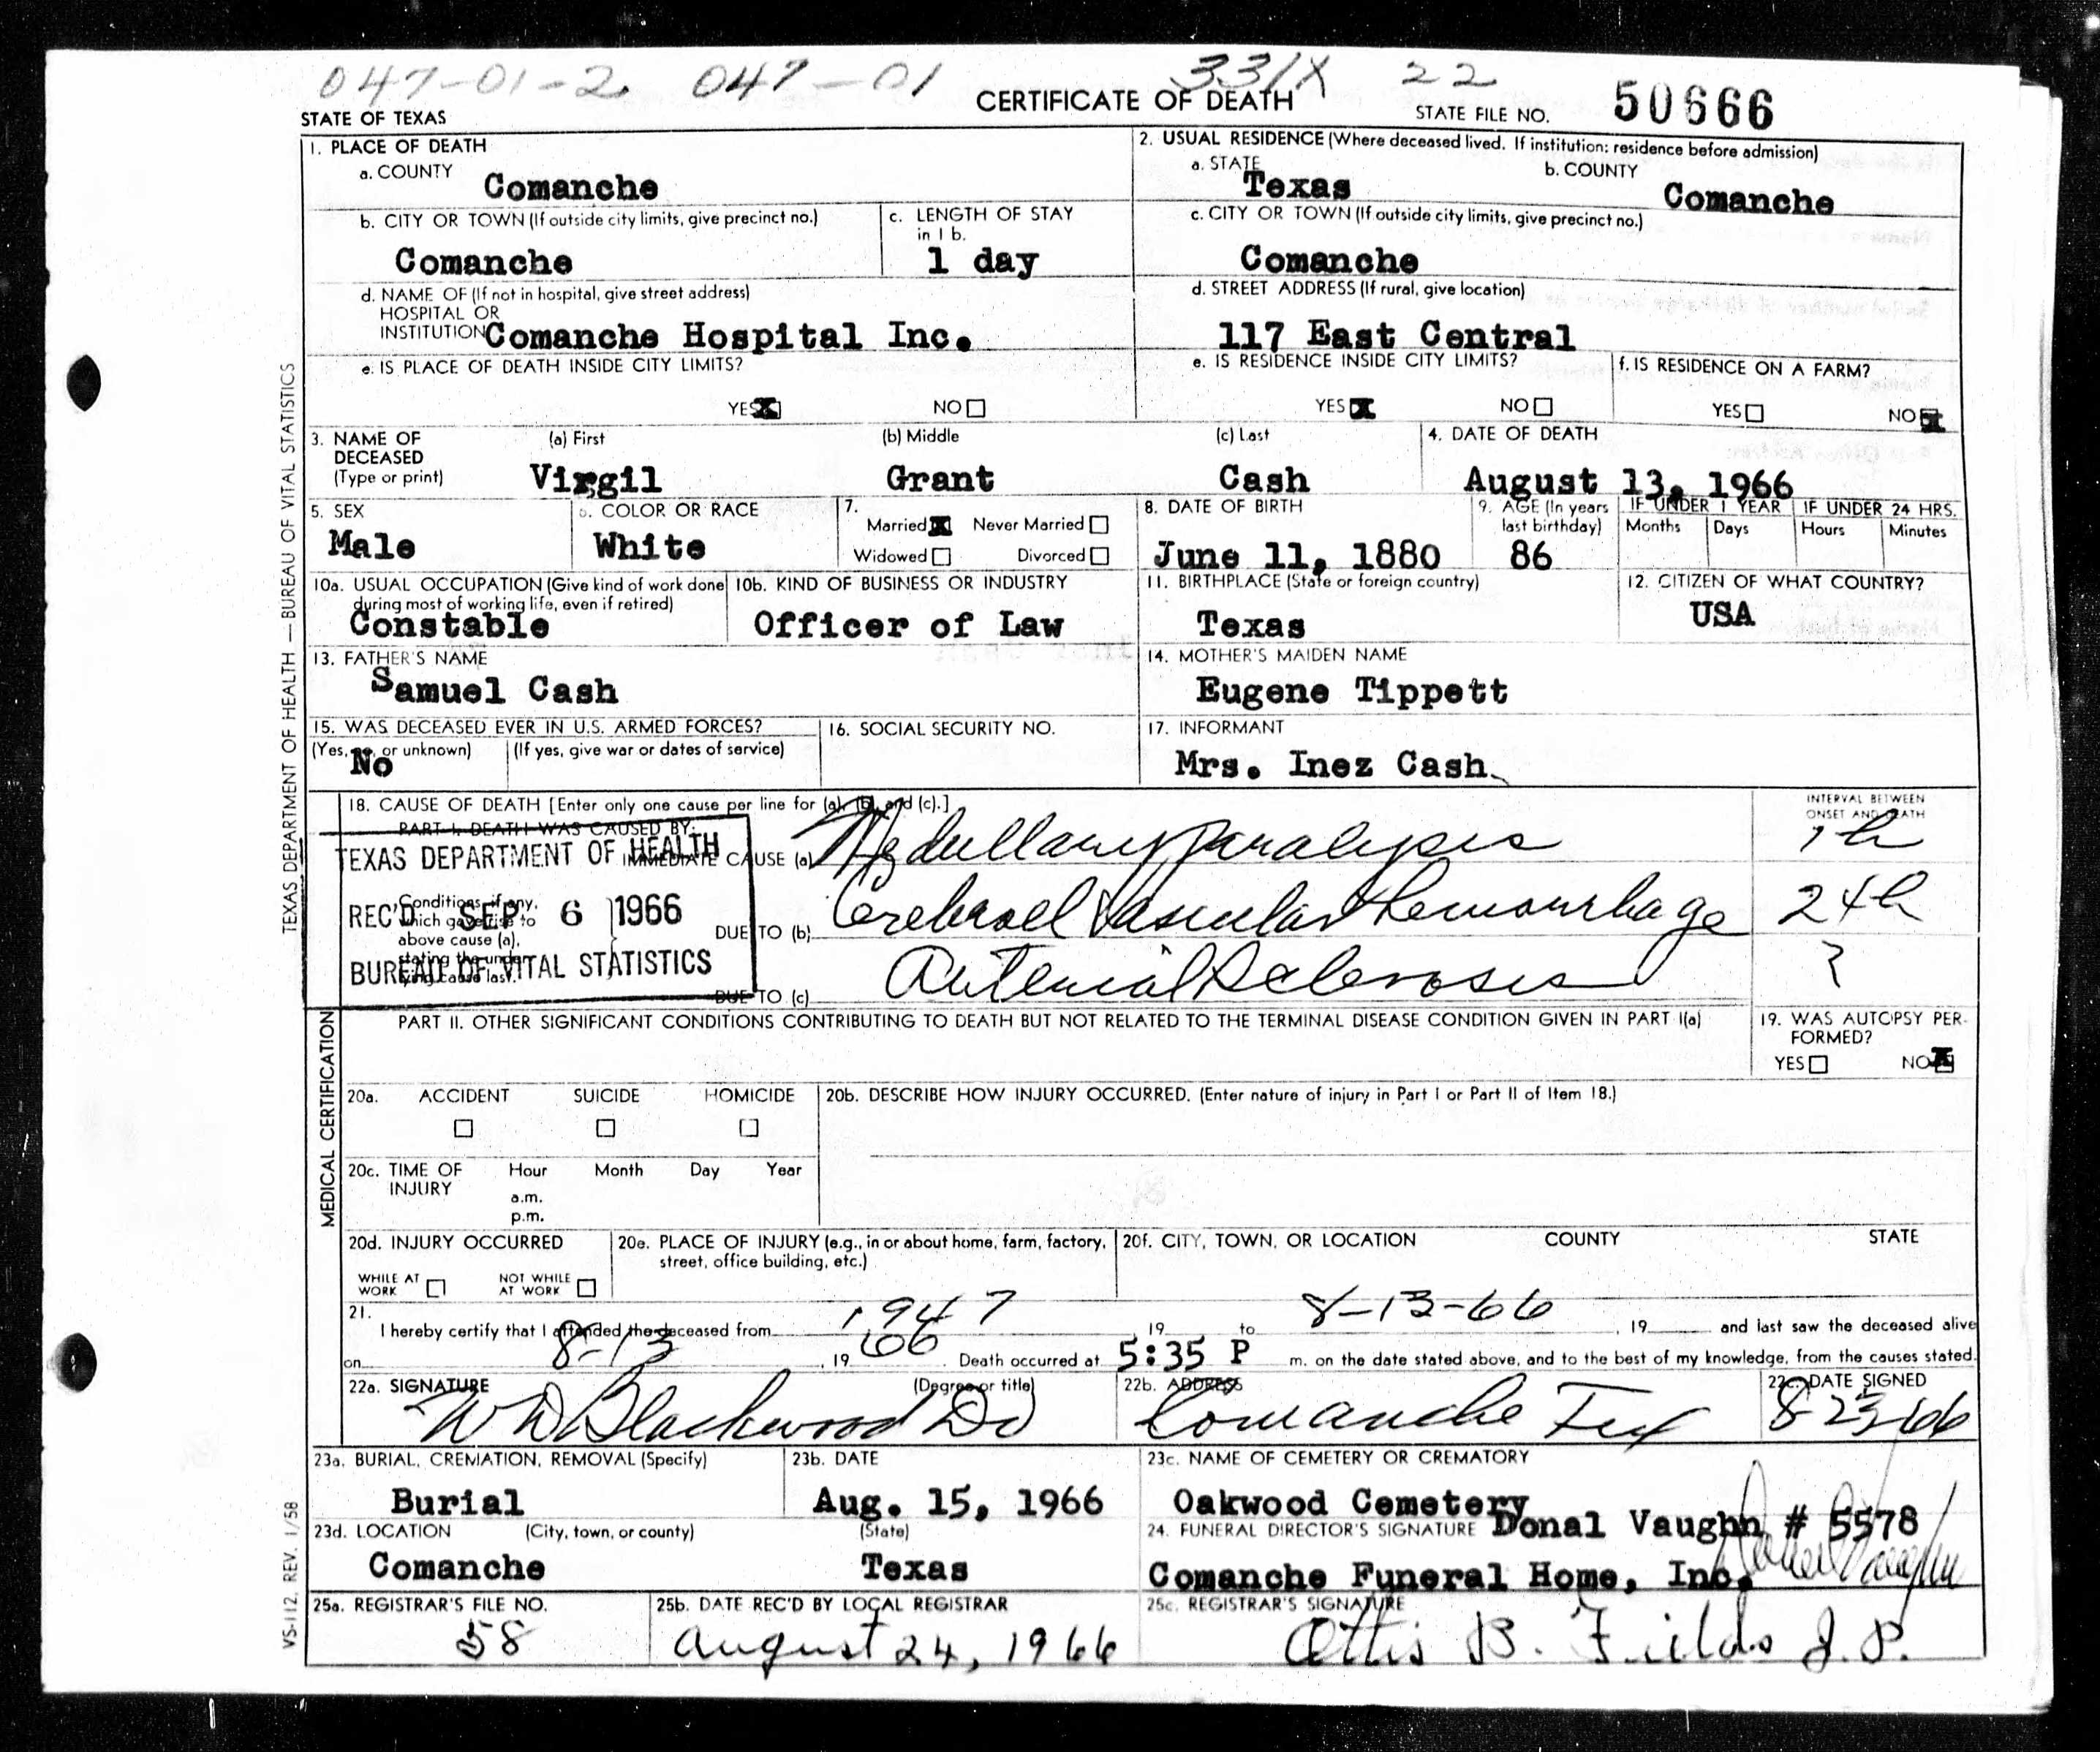 047-01-2. 047-01 331X 22
STATE OF TEXAS CERTIFICATE OF DEATH STATE FILE NO. 50666
1. PLACE OF DEATH
a. COUNTY Comanche
2. USUAL RESIDENCE (Where deceased lived. If institution: residence before admission)
a. STATE Texas b. COUNTY Comanche
b. CITY OR TOWN (If outside city limits, give precinct no.) Comanche
c. LENGTH OF STAY in 1 b. 1 day
c. CITY OR TOWN (If outside city limits, give precinct no.) Comanche
d. NAME OF (If not in hospital, give street address)
HOSPITAL OR
INSTITUTION Comanche Hospital Inc.
d. STREET ADDRESS (If rural, give location)
117 East Central
e. IS PLACE OF DEATH INSIDE CITY LIMITS?
YES X NO
e. IS RESIDENCE INSIDE CITY LIMITS?
YES X NO
f. IS RESIDENCE ON A FARM?
YES NO X
3. NAME OF DECEASED (Type or print)
(a) First (b) Middle (c) Last
Virgil Grant Cash
4. DATE OF DEATH
August 13, 1966
5. SEX
Male
6. COLOR OR RACE
White
7.
Married X Never Married
Widowed Divorced
8. DATE OF BIRTH
June 11, 1880
9. AGE (In years last birthday)
86
IF UNDER 1 YEAR IF UNDER 24 HRS.
Months Days Hours Minutes
10a. USUAL OCCUPATION (Give kind of work done
during most of working life, even if retired)
Constable
10b. KIND OF BUSINESS OR INDUSTRY
Officer of Law
11. BIRTHPLACE (State or foreign country)
Texas
12. CITIZEN OF WHAT COUNTRY?
USA
13. FATHER'S NAME
Samuel Cash
14. MOTHER'S MAIDEN NAME
Eugene Tippett
15. WAS DECEASED EVER IN U.S. ARMED FORCES?
(Yes, no, or unknown) (If yes, give war or dates of service)
No
16. SOCIAL SECURITY NO.
17. INFORMANT
Mrs. Inez Cash
18. CAUSE OF DEATH [Enter only one cause per line for (a), (b), and (c).]
INTERVAL BETWEEN
ONSET AND DEATH
PART I. DEATH WAS CAUSED BY:
IMMEDIATE CAUSE (a) Medullary paralysis 1 h
Conditions, if any,
which gave rise to
above cause (a),
stating the under-
lying cause last.
DUE TO (b) Cerebrael Vascular Hemourhage 24h
DUE TO (c) Arterial Sclerosis ?
TEXAS DEPARTMENT OF HEALTH
REC'D SEP 6 1966
BUREAU OF VITAL STATISTICS
PART II. OTHER SIGNIFICANT CONDITIONS CONTRIBUTING TO DEATH BUT NOT RELATED TO THE TERMINAL DISEASE CONDITION GIVEN IN PART I(a)
19. WAS AUTOPSY PER-
FORMED?
YES NO X
20a. ACCIDENT SUICIDE HOMICIDE
20b. DESCRIBE HOW INJURY OCCURRED. (Enter nature of injury in Part I or Part II of Item 18.)
20c. TIME OF INJURY Hour Month Day Year
a.m.
p.m.
20d. INJURY OCCURRED
WHILE AT WORK NOT WHILE AT WORK
20e. PLACE OF INJURY (e.g., in or about home, farm, factory,
street, office building, etc.)
20f. CITY, TOWN, OR LOCATION COUNTY STATE
21.
I hereby certify that I attended the deceased from 1947 19 to 8-13-66, 19 and last saw the deceased alive
on 8-13, 19 66. Death occurred at 5:35 P m. on the date stated above, and to the best of my knowledge, from the causes stated.
22a. SIGNATURE (Degree or title)
W W Blackwood DO
22b. ADDRESS
Comanche Tex
22c. DATE SIGNED
8-23-66
23a. BURIAL, CREMATION, REMOVAL (Specify)
Burial
23b. DATE
Aug. 15, 1966
23c. NAME OF CEMETERY OR CREMATORY
Oakwood Cemetery
23d. LOCATION (City, town, or county) (State)
Comanche Texas
24. FUNERAL DIRECTOR'S SIGNATURE Donal Vaughn # 5578
Comanche Funeral Home, Inc.
25a. REGISTRAR'S FILE NO.
58
25b. DATE REC'D BY LOCAL REGISTRAR
August 24, 1966
25c. REGISTRAR'S SIGNATURE
Ottis B. Fields J.P.
TEXAS DEPARTMENT OF HEALTH — BUREAU OF VITAL STATISTICS
MEDICAL CERTIFICATION
VS-112, REV. 1/58